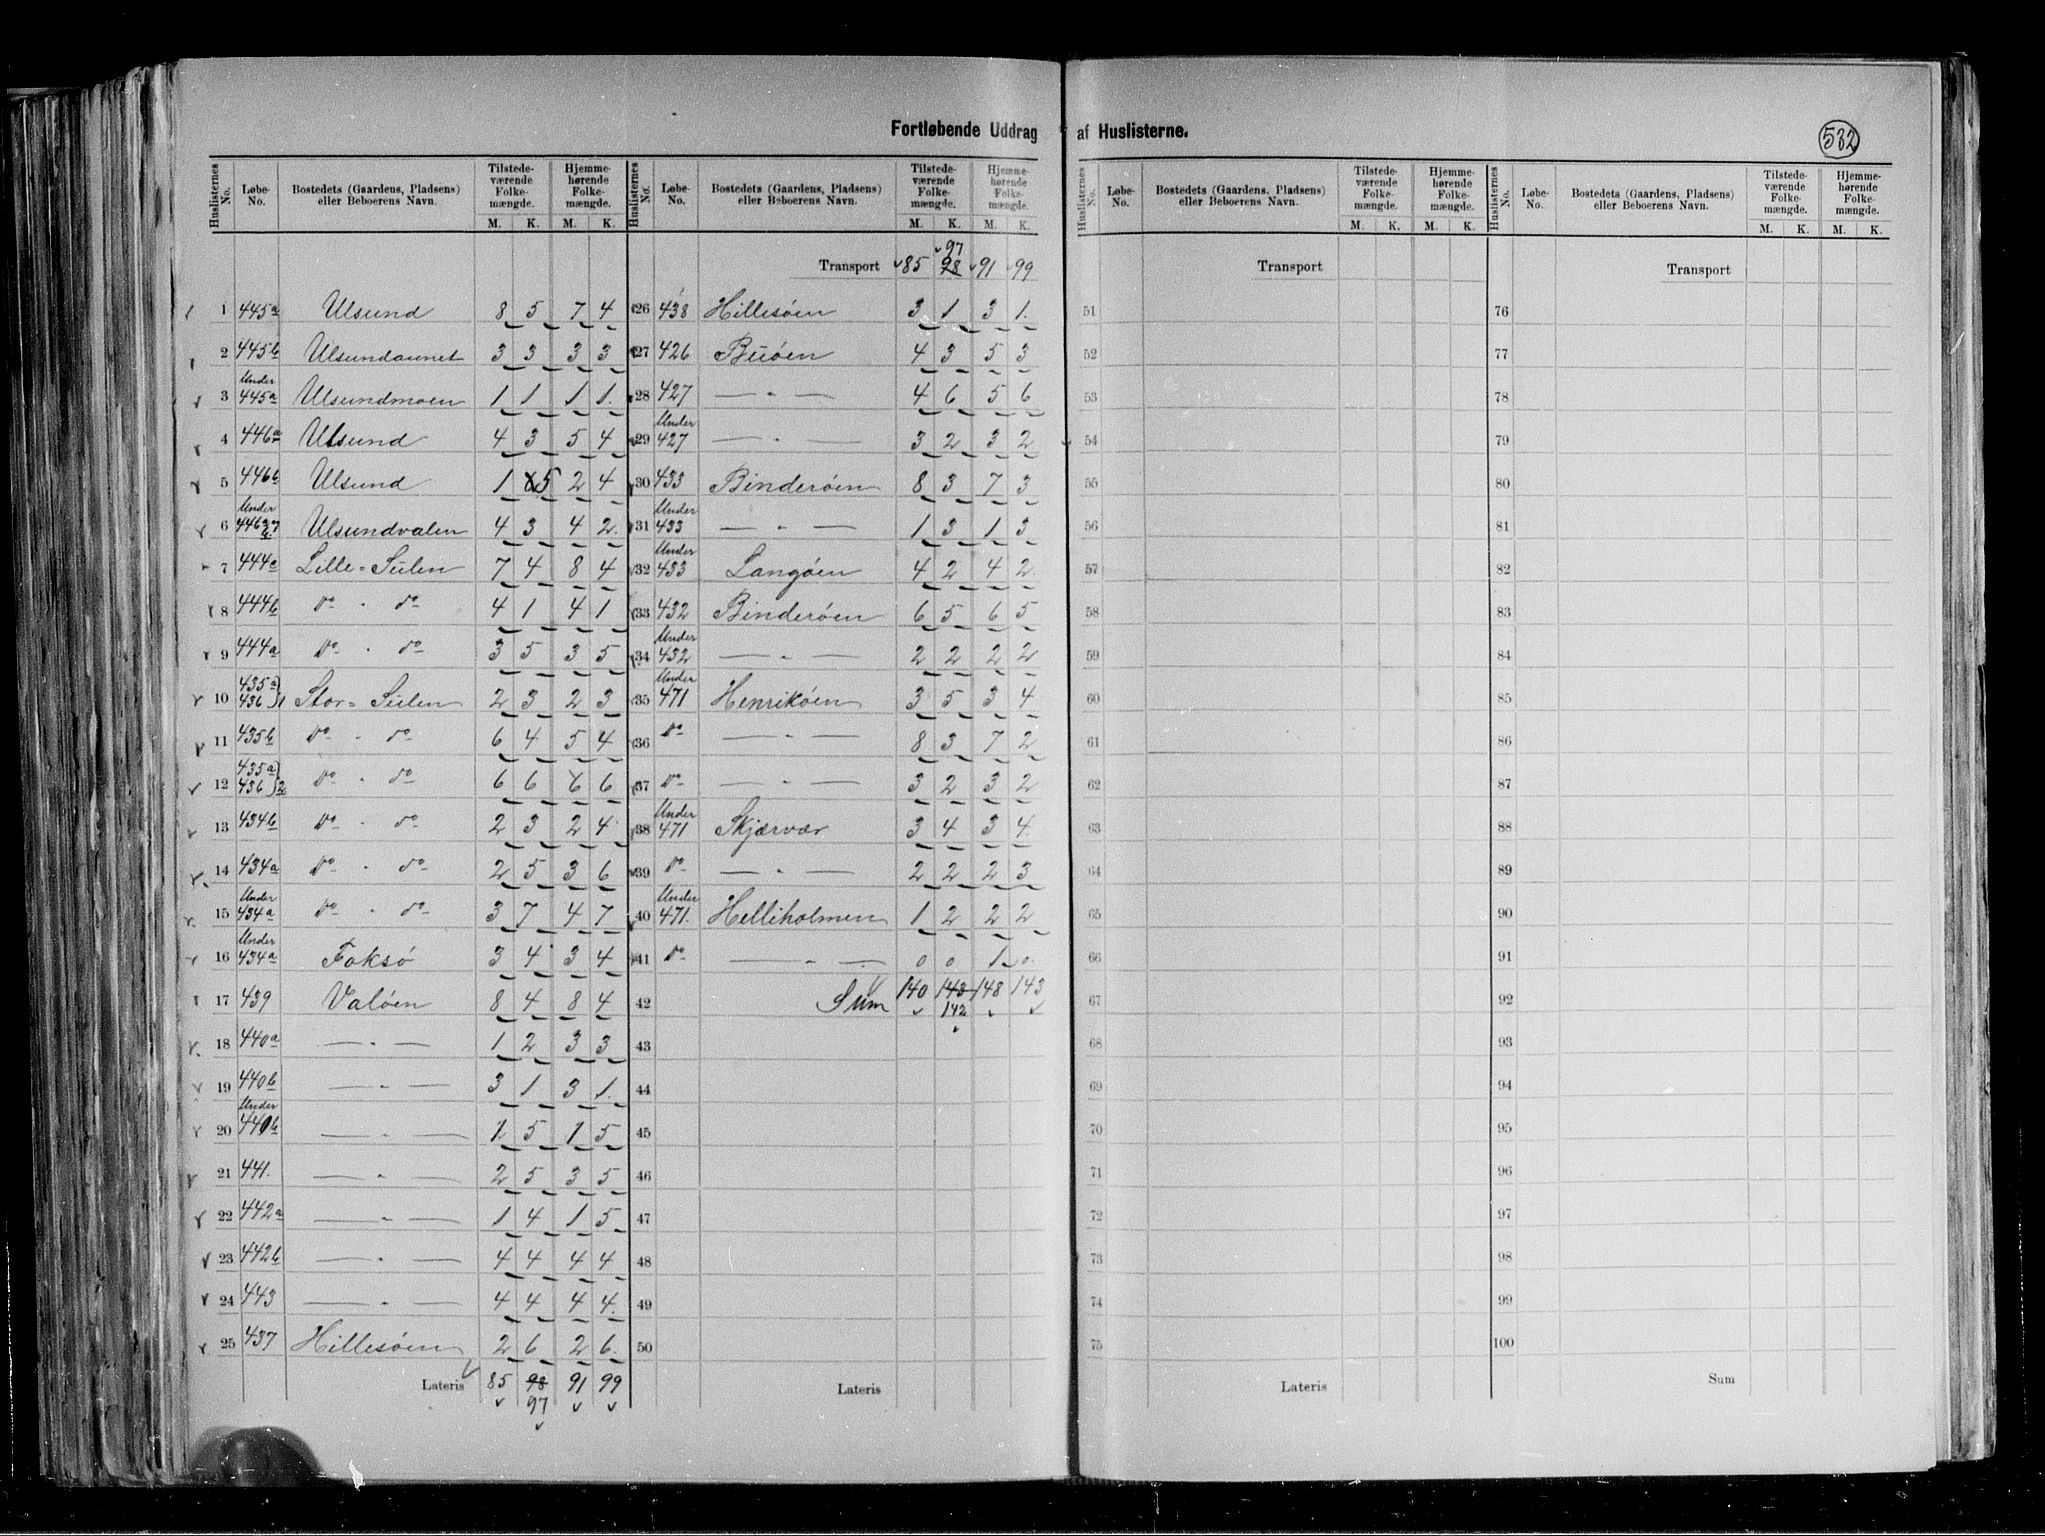 Fortløbende Uddrag af Huslisterne.
532
Huslisternes No. Løbe-No. Bostedets (Gaardens, Pladsens) eller Beboerens Navn. Tilstedeværende Folkemængde. M. K. Hjemmehørende Folkemængde. M. K.
1 445a Ulsund 8 5 7 4
2 445b Ulsundaunet 3 3 3 3
3 Under 445a Ulsundmoen 1 1 1 1.
4 446a Ulsund 4 3 5 4
5 446b Ulsund 1 5 2 4
6 Under Ulsundvalen 4 3 4 2.
7 444c Lille-Sulen 7 4 8 4
8 444b do - do 4 1 4 1
9 444a do - do 3 5 3 5
10 435a 436 } 1 Stor-Sulen 2 3 2 3
11 435b do - do 6 4 5 4
12 435a 436 } 2 do - do 6 6 6 6
13 434b do - do 2 3 2 4
14 434a do - do 2 5 3 6
15 Under 434a do - do 3 7 4 7
16 Under 434a Foksø 3 4 3 4
17 439 Valøen 8 4 8 4
18 440a — " — 1 2 3 3
19 440b — " — 3 1 3 1.
20 Under 440b — " — 1 5 1 5
21 441. — " — 2 5 3 5
22 442a — " — 1 4 1 5
23 442b — " — 4 4 4 4
24 443 — " — 4 4 4 4.
25 437 Hillesøen 2 6 2 6.
Lateris 85 98 91 99
97
Huslisternes No. Løbe-No. Bostedets (Gaardens, Pladsens) eller Beboerens Navn. Tilstedeværende Folkemængde. M. K. Hjemmehørende Folkemængde. M. K.
97
Transport 85 98 91 99
26 438 Hillesøen 3 1 3 1.
27 426 Buøen 4 3 5 3
28 427 — " — 4 6 5 6
29 Under 427 — " — 3 2 3 2
30 433 Binderøen 8 3 7 3
31 Under 433 — " — 1 3 1 3
32 Under 433 Langøen 4 2 4 2
33 432 Binderøen 6 5 6 5
34 Under 432 — " — 2 2 2 2
35 Under 471 Henrikøen 3 5 3 4
36 do — " — 8 3 7 2
37 do — " — 3 2 3 2
38 Under 471 Skjærvær 3 4 3 4.
39 do — " — 2 2 2 3
40 Under 471. Helliholmen 1 2 2 2
41 do — " — 0 0 1 0.
42 Sum 140 143 148 143
142
43
44
45
46
47
48
49
50
Lateris
Huslisternes No. Løbe-No. Bostedets (Gaardens, Pladsens) eller Beboerens Navn. Tilstedeværende Folkemængde. M. K. Hjemmehørende Folkemængde. M. K.
Transport
51
52
53
54
55
56
57
58
59
60
61
62
63
64
65
66
67
68
69
70
71
72
73
74
75
Lateris
Huslisternes No. Løbe-No. Bostedets (Gaardens, Pladsens) eller Beboerens Navn. Tilstedeværende Folkemængde. M. K. Hjemmehørende Folkemængde. M. K.
Transport
76
77
78
79
80
81
82
83
84
85
86
87
88
89
90
91
92
93
94
95
96
97
98
99
100
Sum